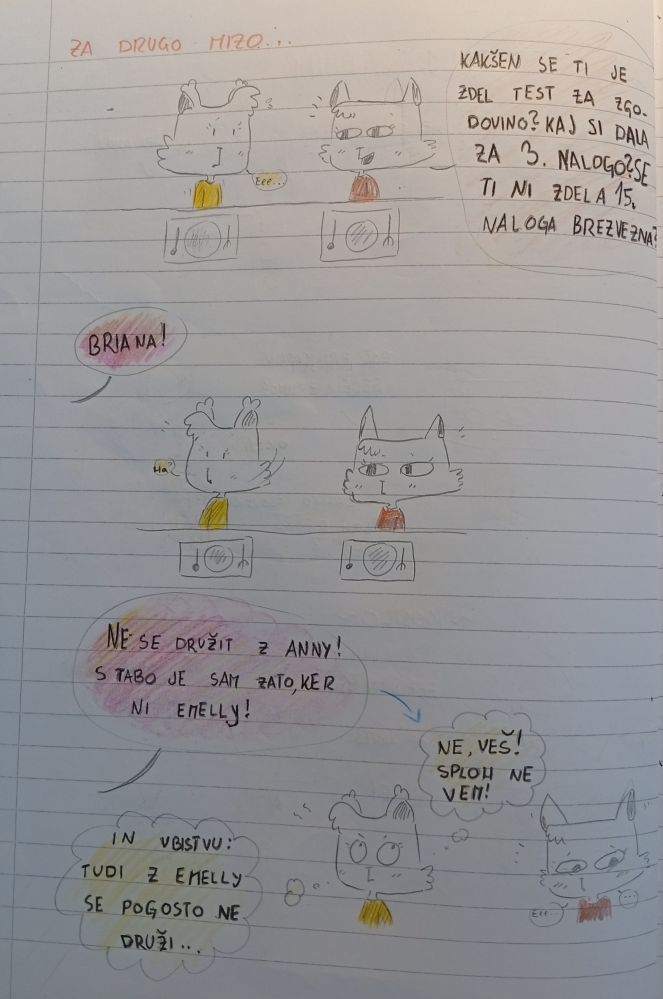 ZA DRUGO MIZO...
KAKŠEN SE TI JE
ZDEL TEST ZA ZGO-
DOVINO? KAJ SI DALA
ZA 3. NALOGO? SE
TI NI ZDELA 15.
NALOGA BREZVEZNA?
Eee...
BRIANA!
Ha?
NE SE DRUŽIT Z ANNY!
S TABO JE SAM ZATO, KER
NI EMELLY!
NE, VEŠ!
SPLOH NE
VEM!
IN VBISTVU:
TUDI Z EMELLY
SE POGOSTO NE
DRUŽI...
Eee...
...